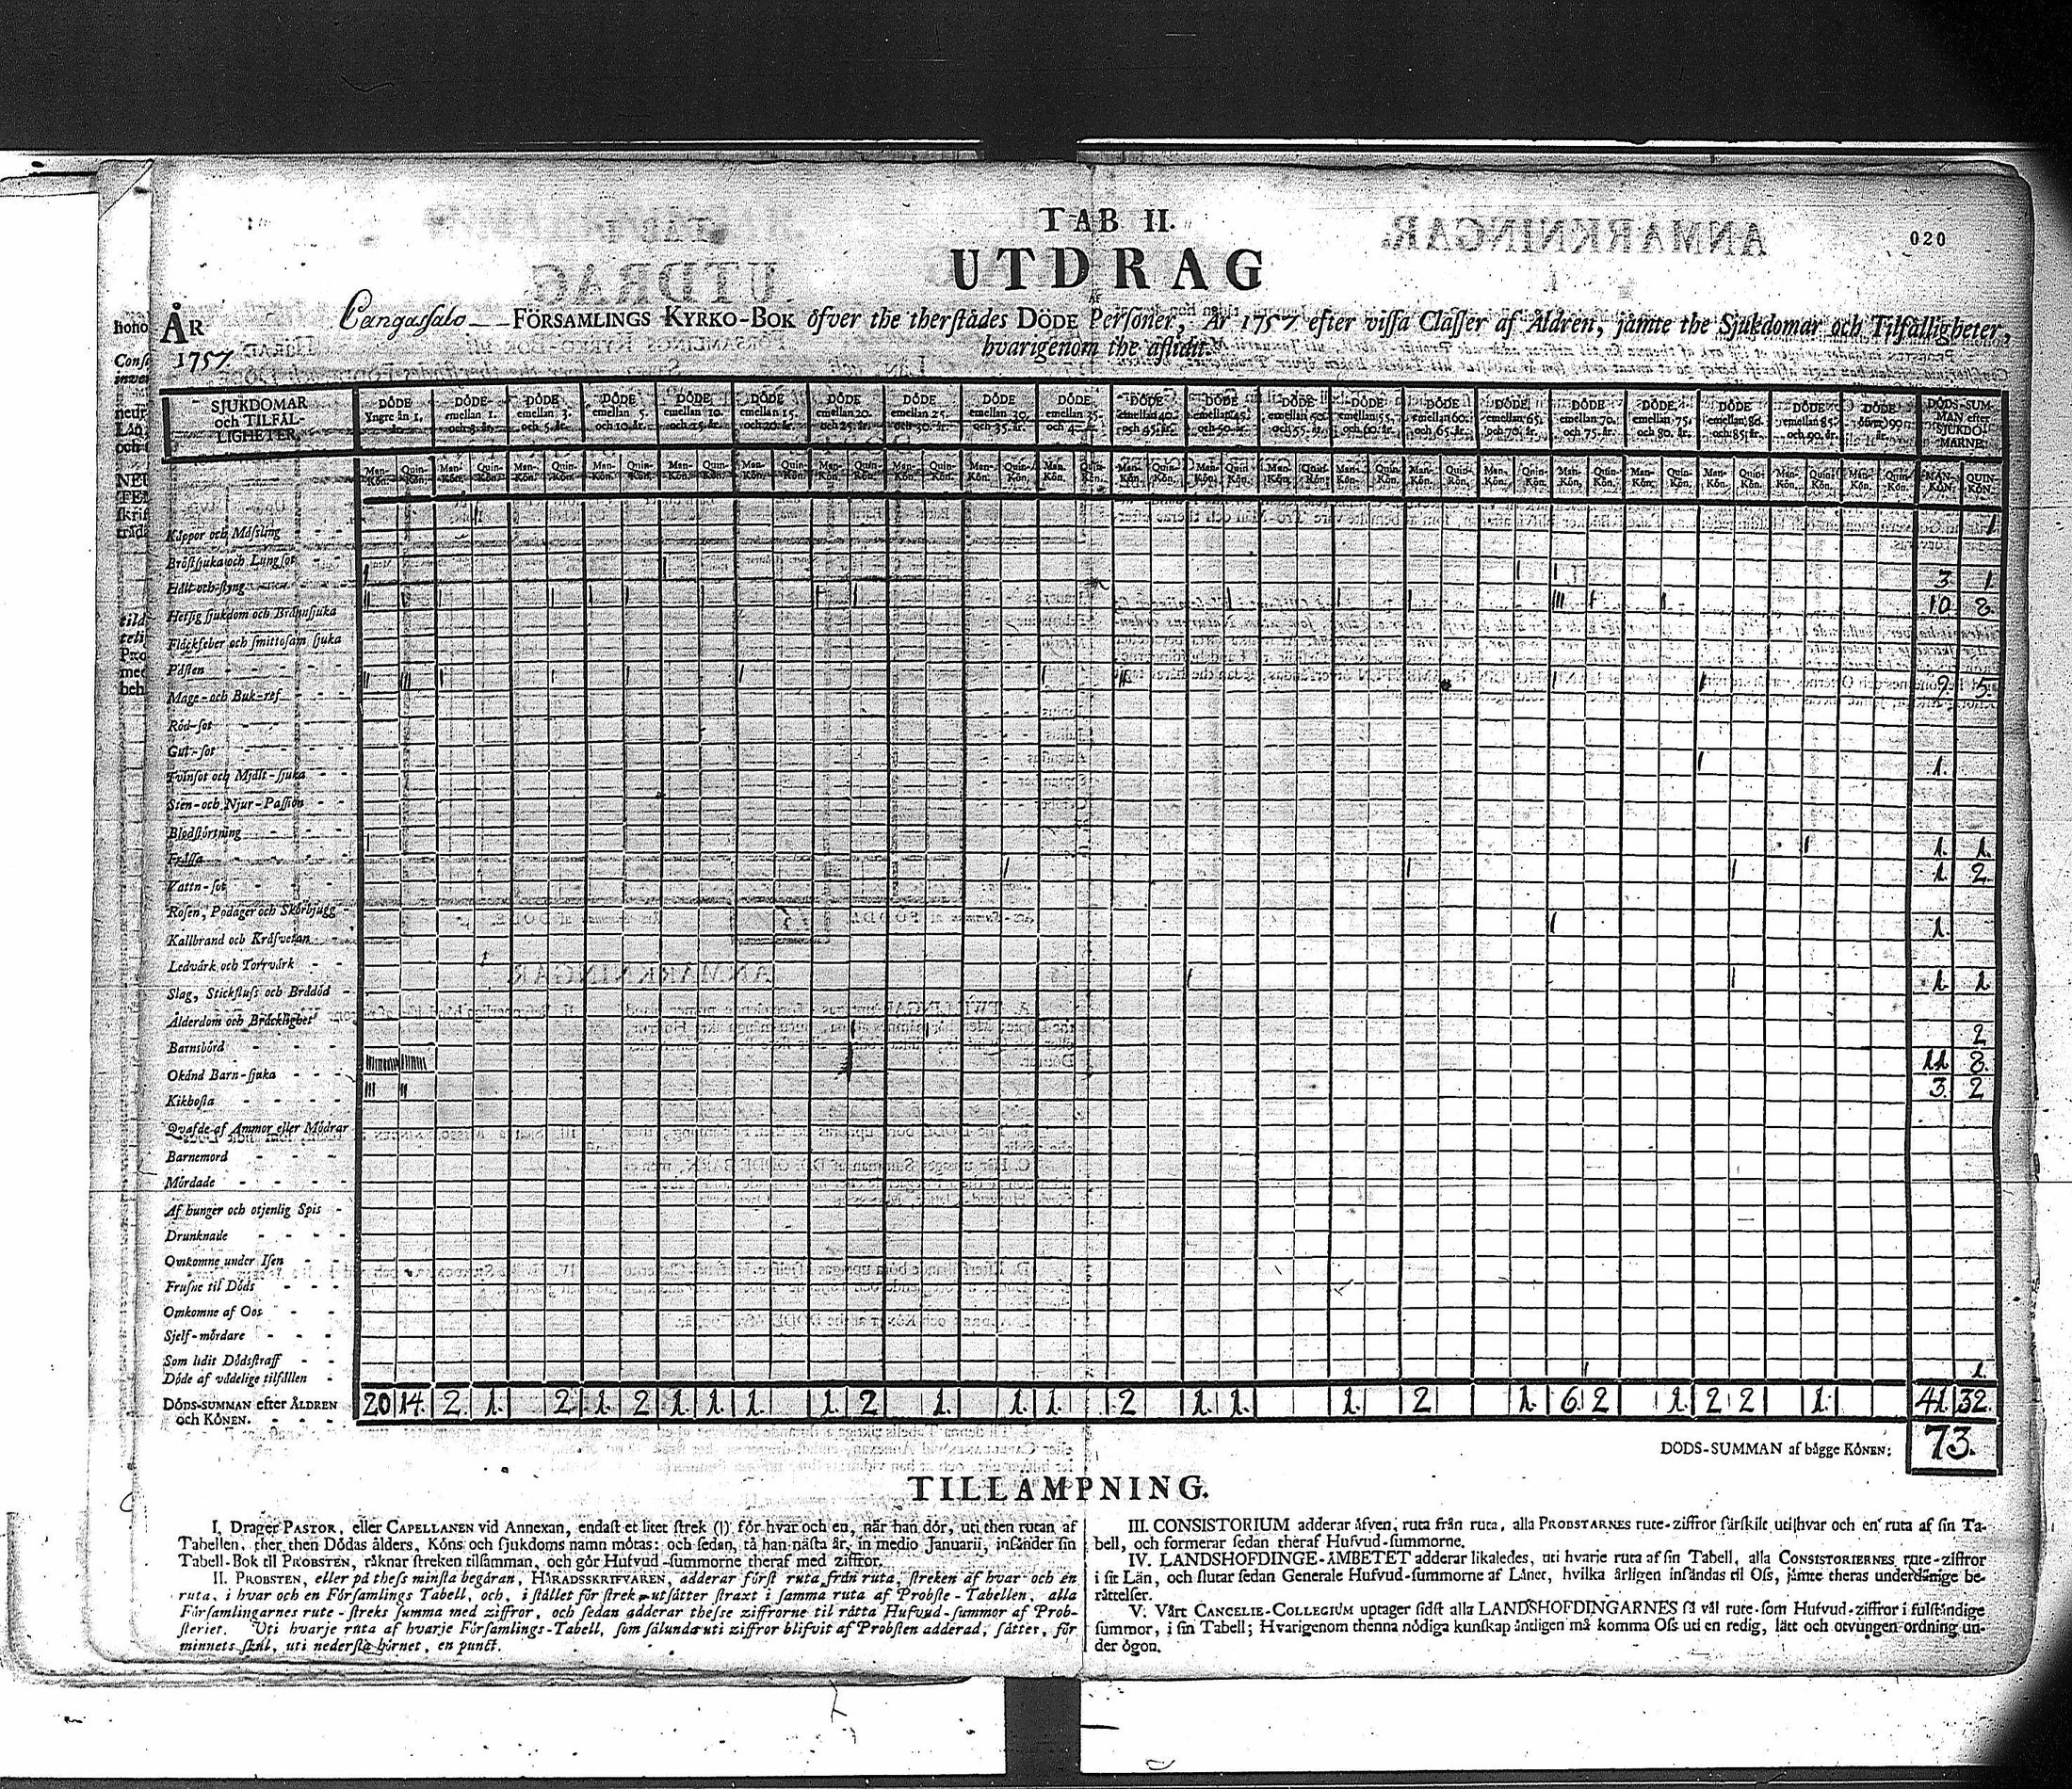 TAB II.
020
UTDRAG
ÅR
1757.
Cangassalo FÖRSAMLINGS KYRKO-BOK öfver the therstådes DÖDE Personer, År 1757 efter vissa Classer af Åldren, jämte the Sjukdomar och Tilfälligheter,
hvarigenom the aflidit.
SJUKDOMAR och TILFÄL-LIGHETER.
DÖDE Yngre än 1. år.
DÖDE emellan 1. och 3. år.
DÖDE emellan 3. och 5. år.
DÖDE emellan 5. och 10. år.
DÖDE emellan 10. och 15. år.
DÖDE emellan 15. och 20. år.
DÖDE emellan 20. och 25. år.
DÖDE emellan 25. och 30. år.
DÖDE emellan 30. och 35. år.
DÖDE emellan 35. och 4
DÖDE emellan 40. och 45. år.
DÖDE emellan 45. och 50. år.
DÖDE emellan 50. och 55. år.
DÖDE emellan 55. och 60. år.
DÖDE emellan 60. och 65. år.
DÖDE emellan 65. och 70. år.
DÖDE emellan 70. och 75. år.
DÖDE emellan 75. och 80. år.
DÖDE emellan 80. och 85. år.
DÖDE emellan 85. och 90. år.
DÖDE öfver 90. år.
DÖDS-SUMMAN efter SJUKDOMARNE.
Man-Kön. Quin-Kön.
Kåppor och Mässling 1
Bröstsjuka och Lungsot
Håll och styng 3 1.
Hetsig sjukdom och Brännsjuka 10 8
Fläckfeber och smittosam sjuka
Pästen
Mage- och Buk-ref 9. 5.
Röd-sot
Gul-sot
Tvinsot och Mjält-sjuka 1.
Sten- och Njur-Passion
Blodstörtning
Frässa 1. 1.
Vattn-sot 1. 2.
Rosen, Podager och Skörbjugg
Kallbrand och Kräfvetan 1.
Ledvärk och Torrvärk
Slag, Stickfluss och Brådöd 1. 1
Ålderdom och Bräcklighet
Barnsbörd 2
Okänd Barn-sjuka 11 8.
Kikhosta 3. 2
Qvafde af Ammor eller Mödrar
Barnemord
Mördade
Af hunger och otjenlig Spis
Drunknade
Omkomne under Isen
Frusne til Döds
Omkomne af Oos
Sjelf-mördare
Som lidit Dödsstraff
Döde af vådelige tilfällen 1.
DÖDS-SUMMAN efter ÅLDREN och KÖNEN. 20 14. 2. 1. 2 1. 2 1. 1. 1. 1. 2 1. 1. 1. 2 1. 1. 1. 2 1. 6. 2 1. 2 2 1. 41. 32.
DÖDS-SUMMAN af bägge KÖNEN: 73.
TILLÄMPNING.
I. Drager PASTOR, eller CAPELLANEN vid Annexan, endast et litet strek (|) för hvar och en, när han dör, uti then rutan af
Tabellen, ther then Dödas ålders, Köns och sjukdoms namn mötas: och sedan, tå han nästa år, in medio Januarii, insänder sin
Tabell-Bok til PROBSTEN, räknar streken tilsamman, och gör Hufvud-summorne theraf med ziffror.
II. PROBSTEN, eller på thess minsta begäran, HÄRADSSKRIFVAREN, adderar först ruta från ruta, streken af hvar och en
ruta, i hvar och en Församlings Tabell, och, i stället för strek, utsätter straxt i samma ruta af Probste-Tabellen, alla
Församlingarnes rute-streks summa med ziffror, och sedan adderar thesse ziffrorne til rätta Hufvud-summor af Prob-
steriet. Uti hvarje ruta af hvarje Församlings-Tabell, som sålunda uti ziffror blifvit af Probsten adderad, sätter, för
minnets skul, uti nedersta hörnet, en punct.
III. CONSISTORIUM adderar äfven, ruta från ruta, alla PROBSTARNES rute-ziffror särskilt uti hvar och en ruta af sin Ta-
bell, och formerar sedan theraf Hufvud-summorne.
IV. LANDSHÖFDINGE-ÄMBETET adderar likaledes, uti hvarje ruta af sin Tabell, alla CONSISTORIERNES rute-ziffror
i sit Län, och slutar sedan Generale Hufvud-summorne af Länet, hvilka årligen insändas til Oss, jämte theras underdånige be-
rättelser.
V. Vårt CANCELIE-COLLEGIUM uptager sidst alla LANDSHÖFDINGARNES så väl rute- som Hufvud-ziffror i fulständige
summor, i sin Tabell; Hvarigenom thenna nödiga kunskap äntligen må komma Oss uti en redig, lätt och otvungen ordning un-
der ögon.